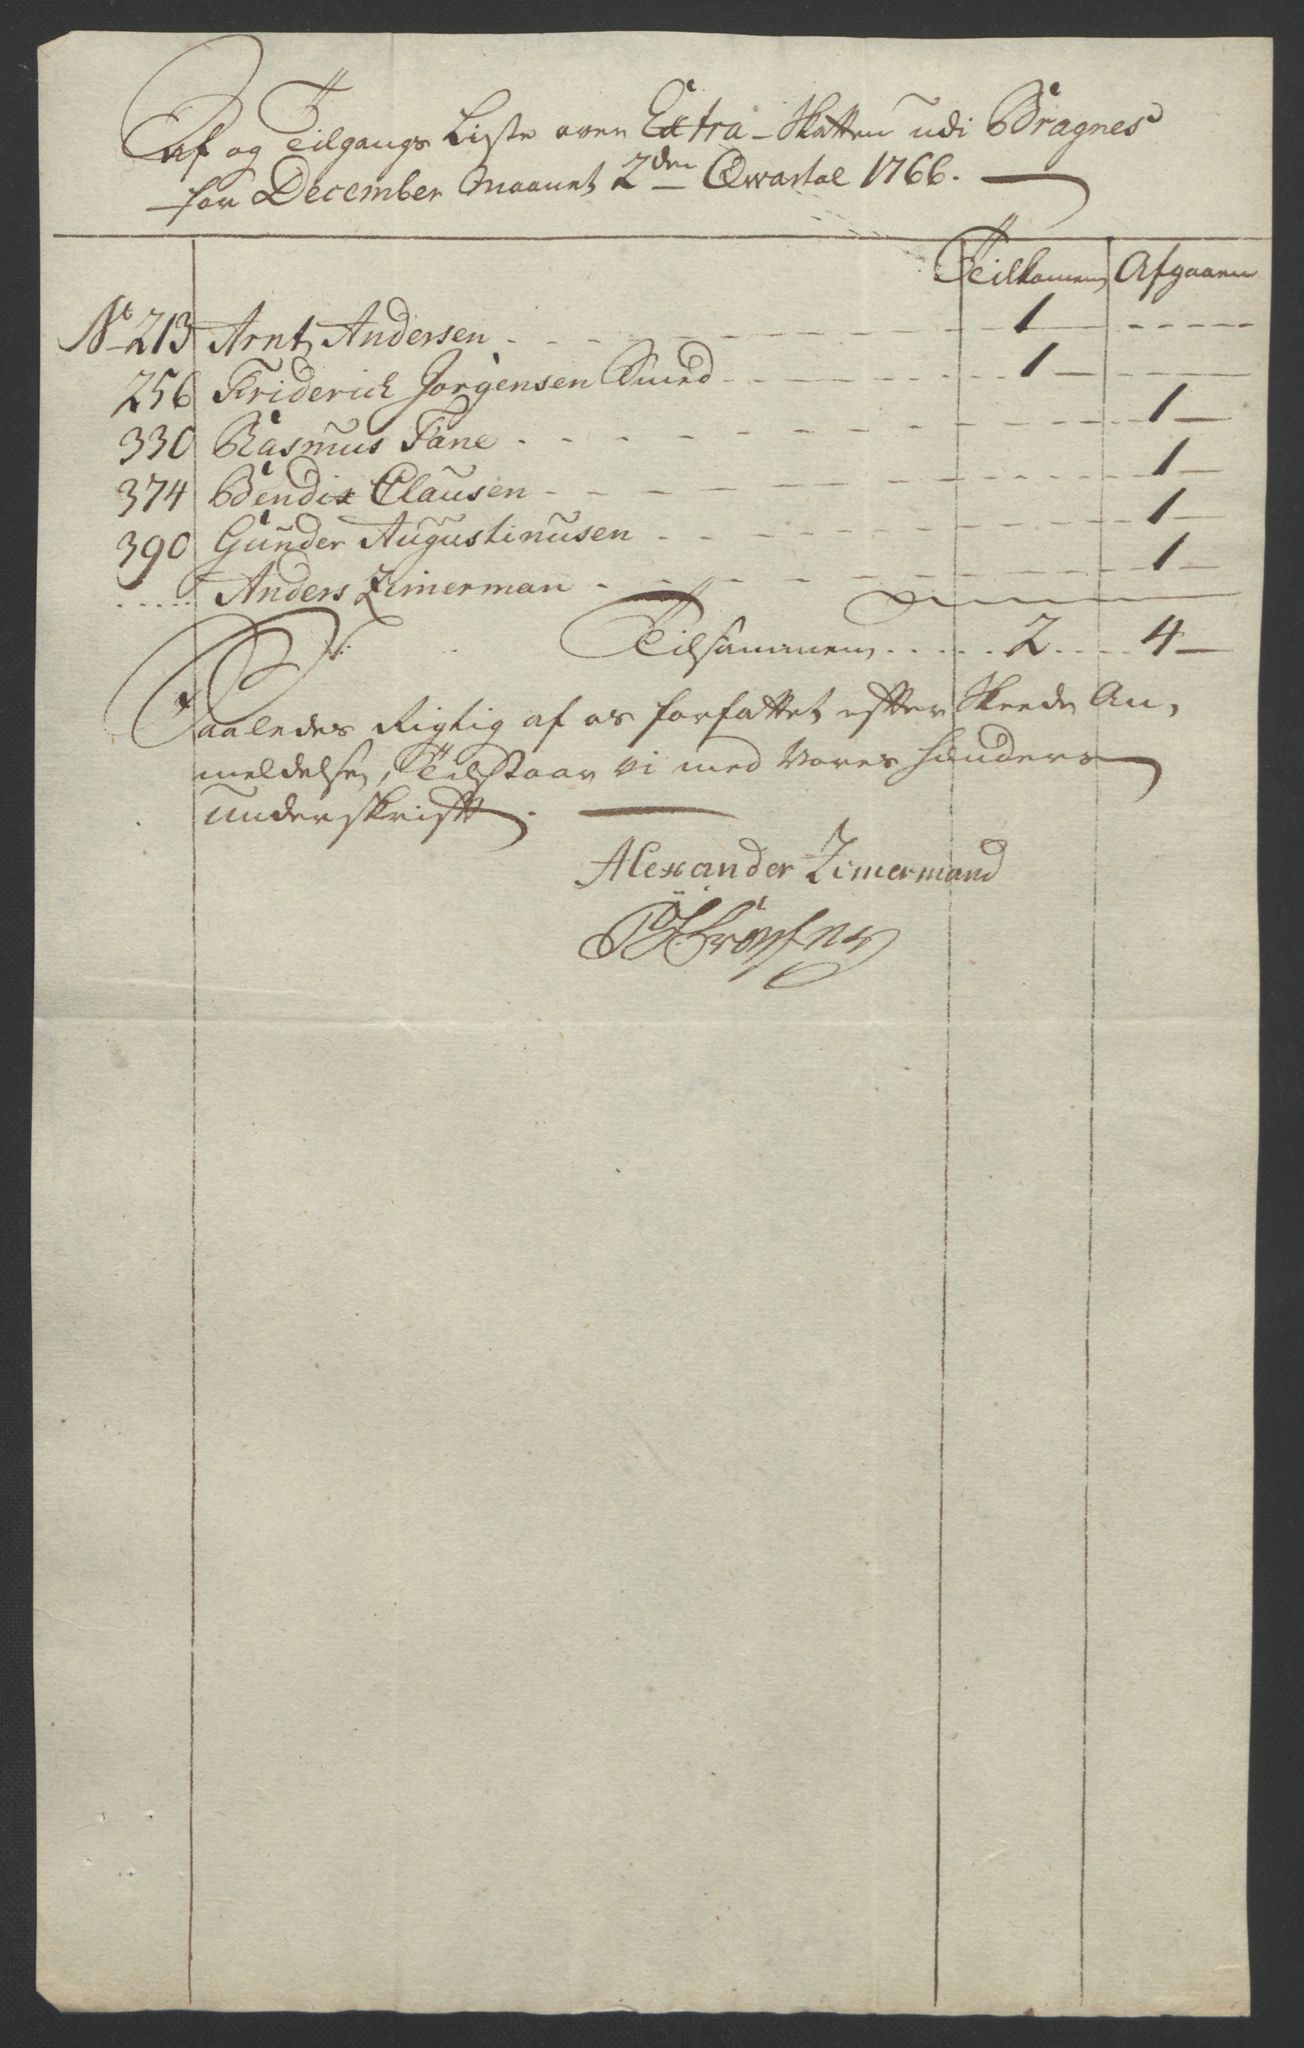 Af og Tilgangs Liste over Extra-Skatten udi Bragnes
for December Maanet 2den Qvartal 1766.
Tilkomen Afgaaen
No 213 Arnt Andersen 1
256 Friderich Jorgensen Smed 1
330 Rasmus Fane 1
374 Bendix Clausen 1
390 Gunder Augustinusen 1
..... Anders Zimerman 1
Tilsammen ..... 2 .... 4
Saaledes Rigtig af os forfattet efter Skeede An,
meldelsen, Tilstaar vi med Vores hænders
underskrift.
Alexander Zimermand